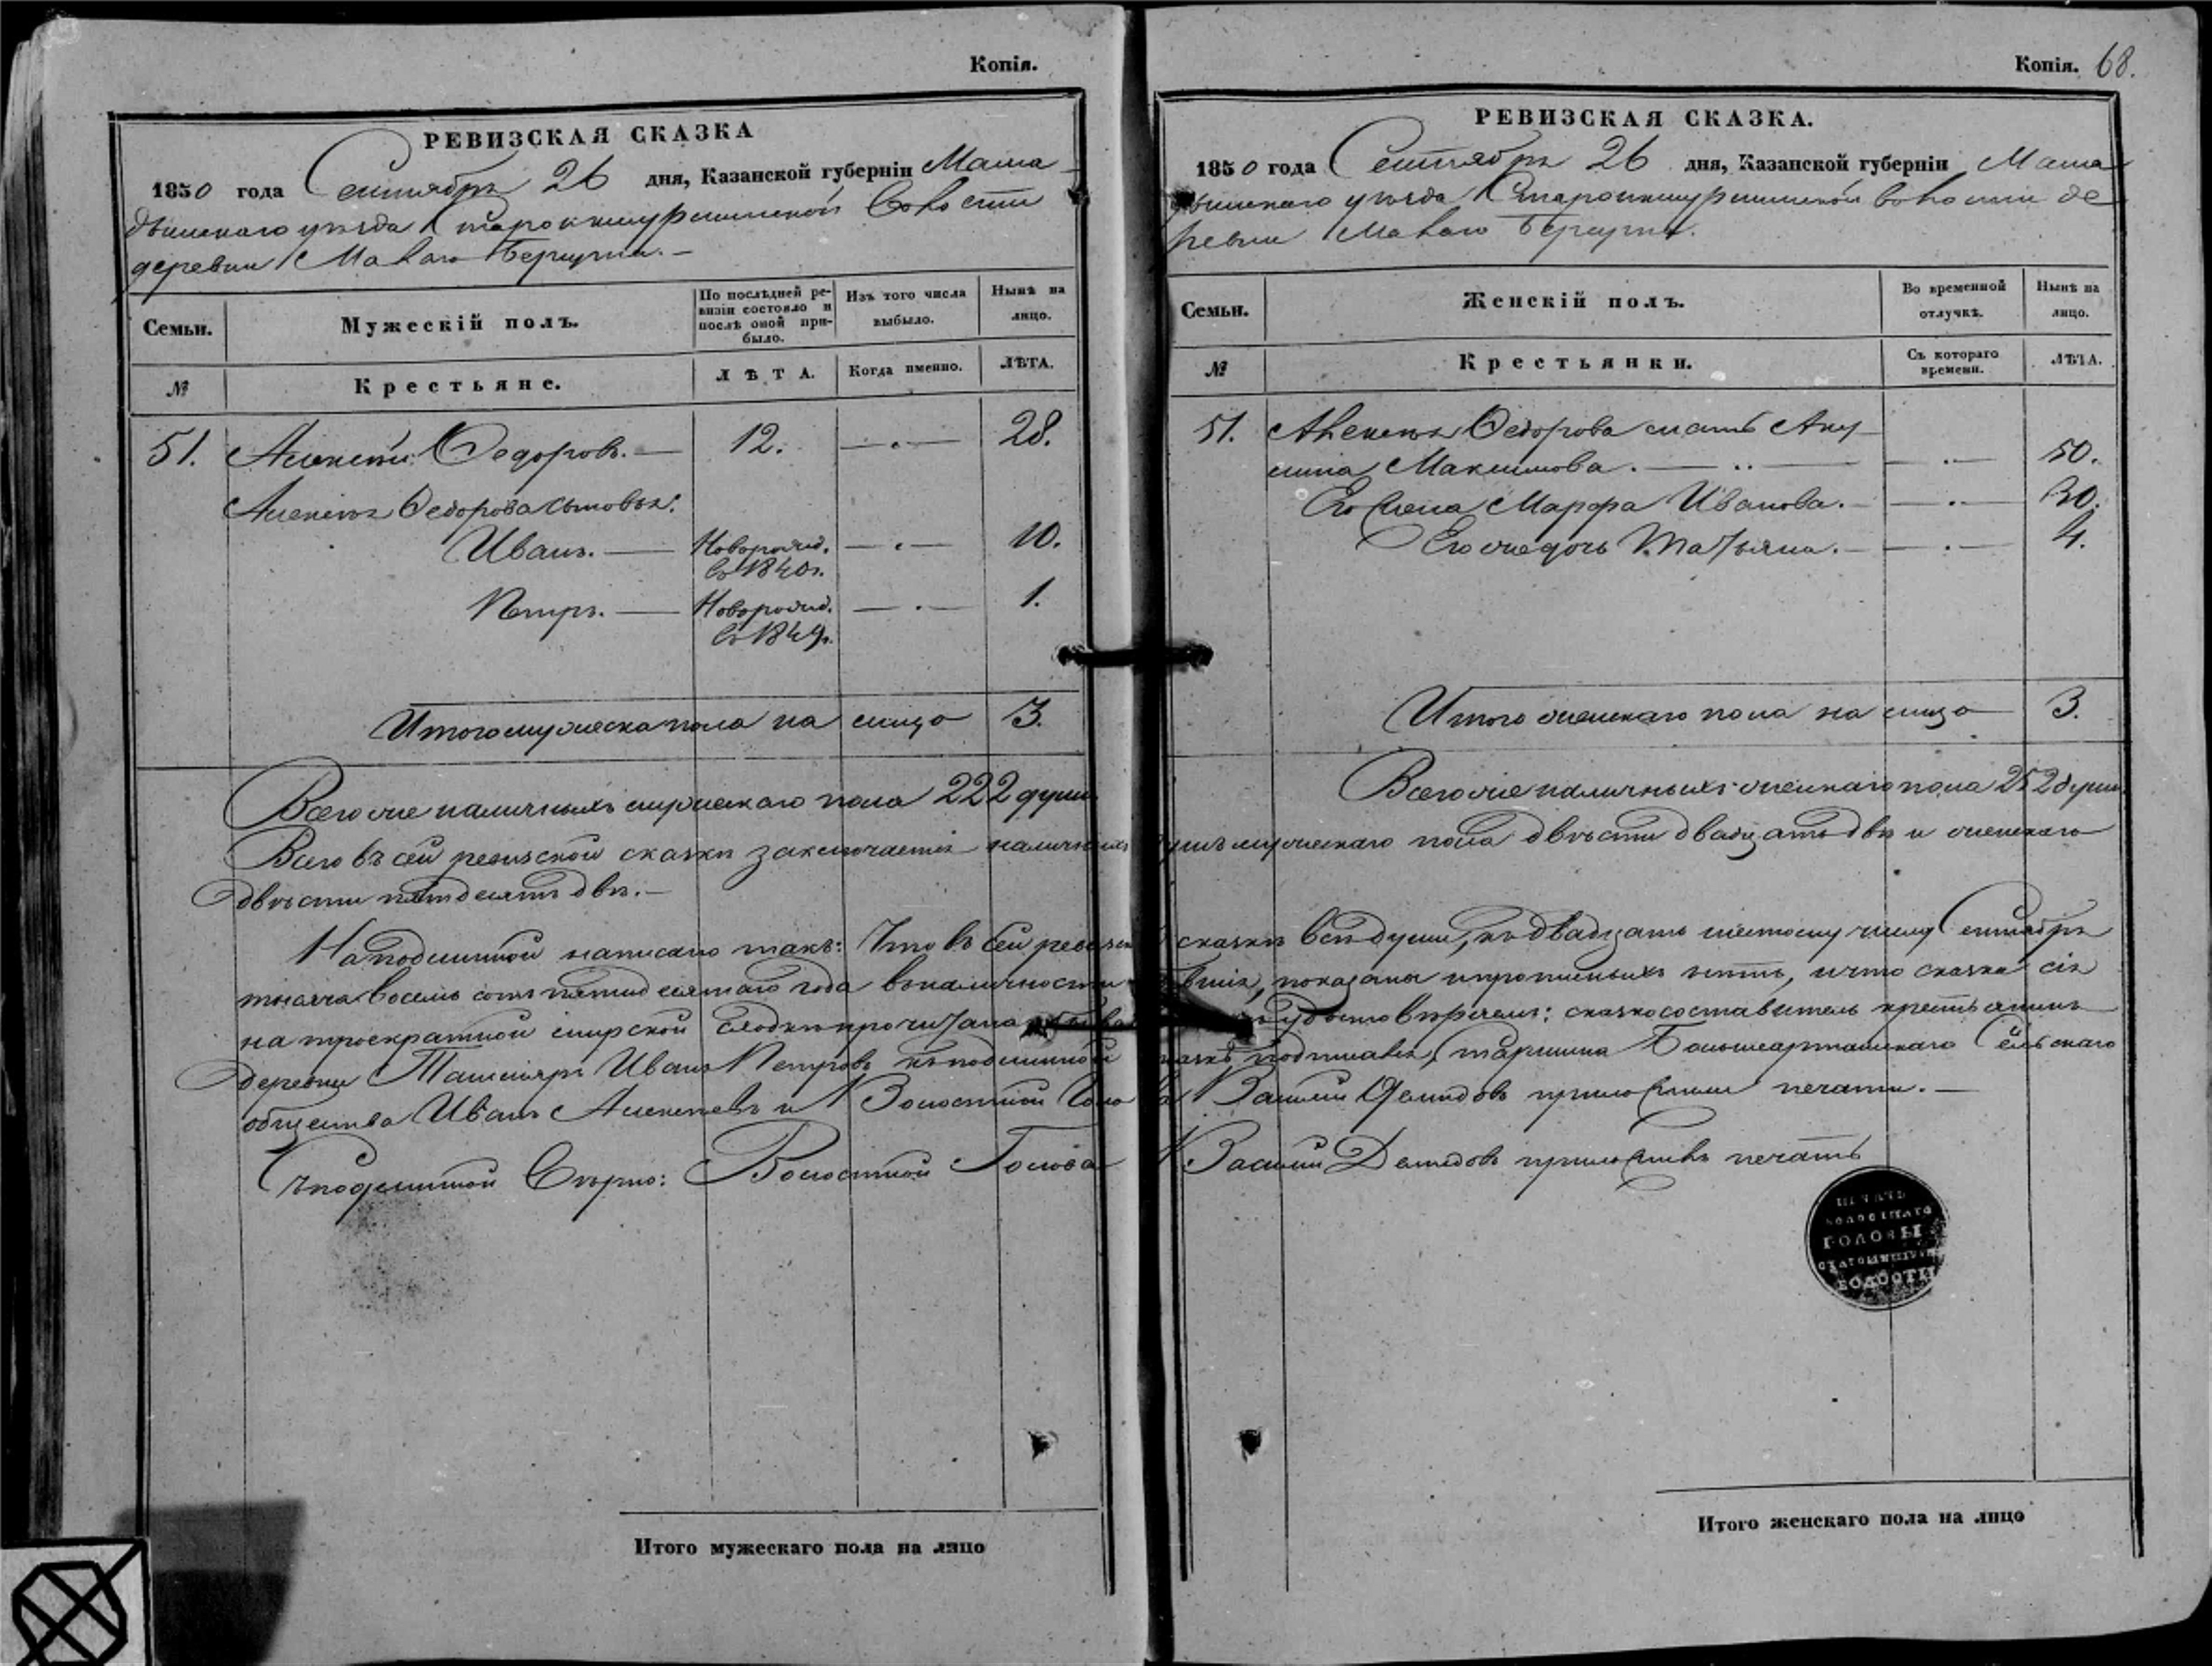 Копія.
РЕВИЗСКАЯ СКАЗКА
1850 года Сентября 26 дня, Казанской губерніи Мама
дышскаго уѣзда Старопкшурминской волости
деревни Малаго
Семьи.
Мужескій полъ.
По послѣдней ре-
визіи состояло и
послѣ оной при-
было.
Изъ того числа
выбыло.
Нынѣ на
лицо.
№
Крестьяне.
ЛѢТА.
Когда именно.
ЛѢТА.
51. Алексѣй Федоровъ. — 12. — 28.
Алексѣя Федорова сыновья:
Иванъ. — Новорожд. — 10.
съ 1840г.
Петръ. — Новорожд. — 1.
съ 1849г.
Итого мужеска пола на лицо 3.
Всего же наличныхъ мужескаго пола 222 души
Копія. 68.
РЕВИЗСКАЯ СКАЗКА.
1850 года Сентября 26 дня, Казанской губерніи Мама
дышскаго уѣзда Старопкшурминской волости де
ревни Малаго
Семьи.
Женскій полъ.
Во временной
отлучкѣ.
Нынѣ на
лицо.
№
Крестьянки.
Съ котораго
времени.
ЛѢТА.
51. Алексѣя Федорова мать Аку
лина Максимова. — 50.
Его жена Марфа Иванова. — 30.
Его же дочь Татьяна. — 4.
Итого женскаго пола на лицо 3.
Всего же наличныхъ женскаго пола 252 души
Всего въ сей ревизской сказкѣ заключается наличныхъ душъ мужескаго пола двѣсти двадцать двѣ и женскаго
двѣсти пятдесятъ двѣ. —
На подлинной написано такъ: Что въ сей ревизской сказкѣ всѣ души, къ двадцать шестому числу Сентября
тысяча восемь сотъ пятидесятаго года въ наличности показаны и прописныхъ нѣтъ, и что сказка сія
на троекратной мирской сходкѣ прочитана въ томъ: сказкосоставитель крестьянинъ
деревни Иванъ Петровъ къ подлинной старшина Сельскаго
общества Иванъ Алексѣевъ и Волостной Голова Василій Демидовъ приложили печати. —
Съ подлинной Вѣрно: Волостной Голова Василій Демидовъ приложилъ печать
ПЕЧАТЬ
ВОЛОСТНАГО
ГОЛОВЫ
ВОЛОСТИ
Итого мужескаго пола на лицо
Итого женскаго пола на лицо